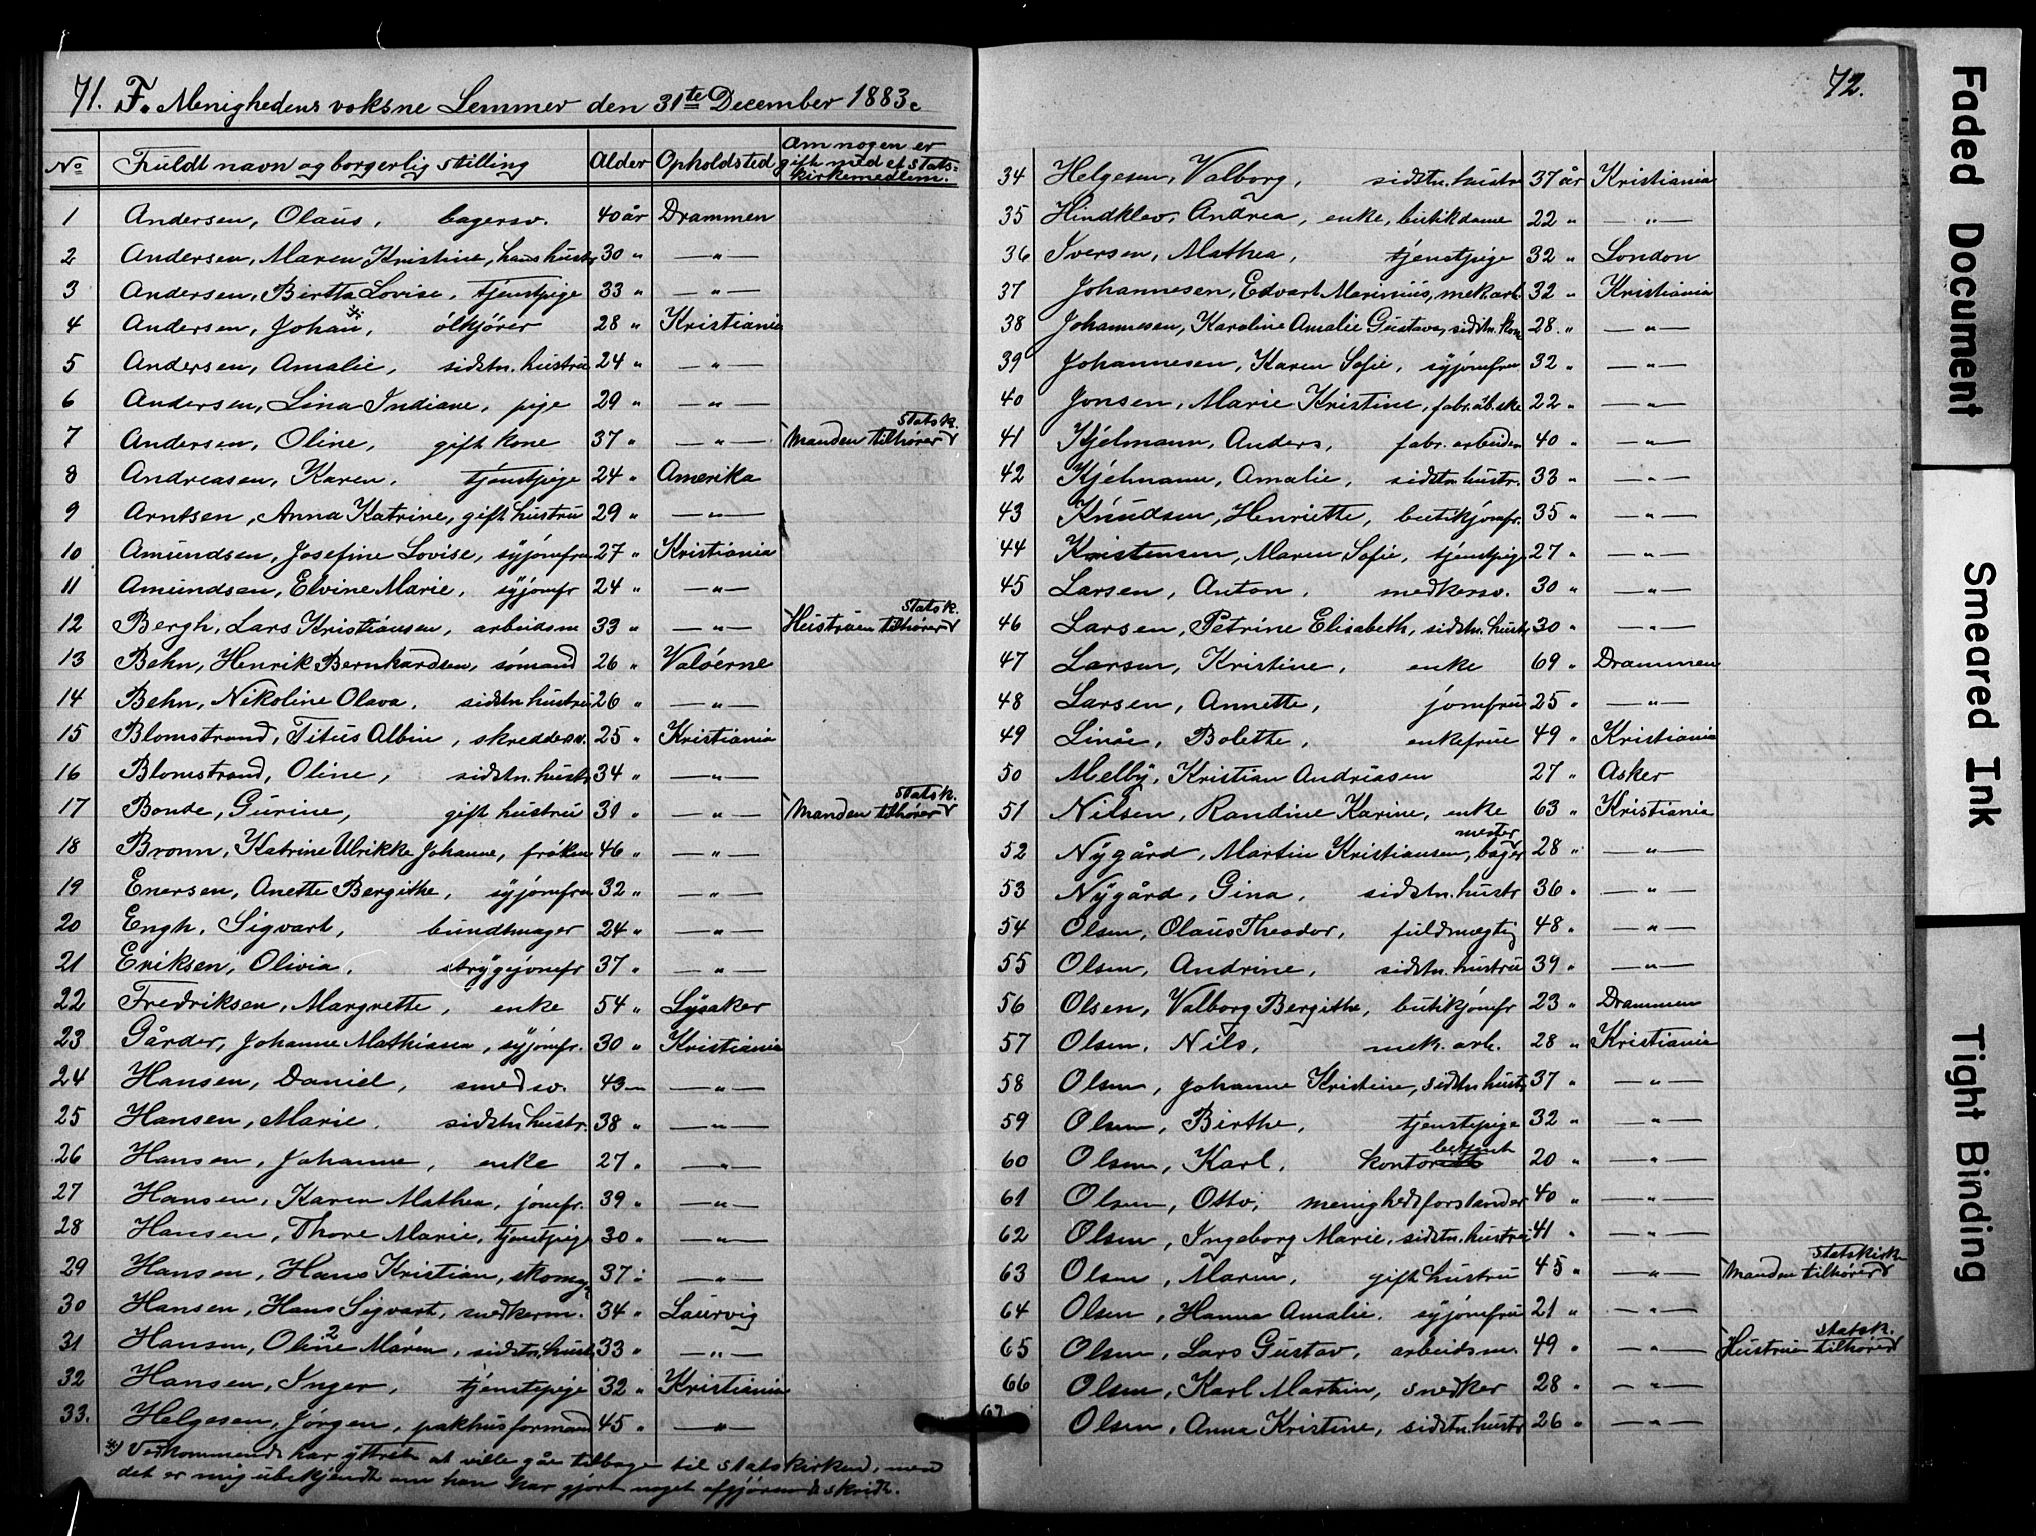 71. F. Menighedens voksne Lemmer den 31te December 1883.
No Fuldt navn og borgerlig stilling Alder Opholdsted Om nogen er gift med et Stats-kirkemedlem.
1 Andersen, Olaus, bagersv. 40 år Drammen
2 Andersen, Maren Kristine, hans hustru 30 " — " —
3 Andersen, Birtha Lovise, tjenstpige 33 " — " —
4 Andersen, Johan *), ölkjörer 28 " Kristiania
5 Andersen, Amalie, sidstn. hustru 24 " — " —
6 Andersen, Lina Indiane, pige 29 " — " —
7 Andersen, Oline, gift kone 37 " — " — Manden tilhører Statsk.
8 Andreasen, Karen, tjenstpige 24 " Amerika
9 Arntsen, Anna Katrine, gift hustru 29 " — " —
10 Amundsen, Josefine Lovise, syjomfru 27 " Kristiania
11 Amundsen, Elvine Marie, syjomfr 24 " — " —
12 Bergh, Lars Kristiansen, arbeidsm 33 " — " — Hustruen tilhører Statsk.
13 Behn, Henrik Bernhardsen, sømand 26 " Valöerne
14 Behn, Nikoline Olava, sidstn hustru 26 " — " —
15 Blomstrand, Titus Albin, skreddersv. 25 " Kristiania
16 Blomstrand, Oline, sidstn. hustr 34 " — " —
17 Bonde, Gurine, gift hustru 31 " — " — Manden tilhører Statsk.
18 Bronn, Katrine Ulrikke Johanne, frøken 46 " — " —
19 Enersen, Anette Bergithe, syjomfru 32 " — " —
20 Engh, Sigvart, bundtmager 24 " — " —
21 Eriksen, Olivia, strygejomfr 37 " — " —
22 Fredriksen, Margrette, enke 54 " Lysaker
23 Gårder, Johanne Mathiasen, syjomfr. 30 " Kristiania
24 Hansen, Daniel, smedsv. 43 — " —
25 Hansen, Marie, sidstn hustr. 38 " — " —
26 Hansen, Johanne, enke 27 " — " —
27 Hansen, Karen Mathea, jomfr. 39 " — " —
28 Hansen, Thore Marie, tjenstpige 30 " — " —
29 Hansen, Hans Kristian, skomag 37 " — " —
30 Hansen, Hans Sigvart, snedkerm. 34 " Laurvig
31 Hansen, Oline Máren, sidstn. hust. 33 " — " —
32 Hansen, Inger, tjenstepige 32 " Kristiania
33. Helgesen, Jörgen, pakhusformand 45 " — " —
*) Vedkommende har yttret at ville gåe tilbage til statskirken, men
det er mig ubekjendt om han har gjort noget afgjörende skridt.
72.
34 Helgesen, Valborg, sidstn. hustr 37 år Kristiania
35 Hindklev, Andrea, enke, butikdame 22 " — " —
36 Iversen, Mathea, tjenstpige 32 " London
37 Johannesen, Edvart Marinius, mek. arb. 32 " Kristiania
38 Johannesen, Karoline Amalie Gustava, sidstn. kone 28 " — " —
39 Johannesen, Karen Sofie, syjomfru 32 " — " —
40 Jonsen, Marie Kristine, 22 " — " —
41 Kjelmann, Anders, fabr. arbeider 40 " — " —
42 Kjelmann, Amalie, sidstn. hustr. 33 " — " —
43 Knudsen, Henriette, butikjomfr. 35 " — " —
44 Kristensen, Maren Sofie, tjenstpige 27 " — " —
45 Larsen, Anton, snedkersv. 30 " — " —
46 Larsen, Petrine Elisabeth, sidstn. hustr 30 " — " —
47 Larsen, Kristine, enke 69 " Drammen
48 Larsen, Annette, jomfru 25 " — " —
49 Linåe, Bolette, enkefrue 49 " Kristiania
50 Melby, Kristian Andreasen 27 " Asker
51 Nilsen, Randine Karine, enke 63 " Kristiania
52 Nygård, Martin Kristiansen, bager mester 28 " — " —
53 Nygård, Gina, sidstn. hustr 36 " — " —
54 Olsen, Olaus Theodor, fuldmægtig 48 " — " —
55 Olsen, Andrine, sidstn. hustru 39 " — " —
56 Olsen, Valborg Bergithe, butikjomfr 23 " Drammen
57 Olsen, Nils, mek. arb. 28 " Kristiania
58 Olsen, Johanne Kristine, sidstn hustr 37 " — " —
59 Olsen, Birthe, tjenstepige 32 " — " —
60 Olsen, Karl, kontor betjent 20 " — " —
61 Olsen, Otto, menighedsforstander 40 " — " —
62 Olsen, Ingeborg Marie, sidstn. hustru 41 " — " —
63 Olsen, Maren, gift hustru 45 " — " — Manden tilhører Statskirk
64 Olsen, Hanna Amalie, syjomfru 21 " — " —
65 Olsen, Lars Gustav, arbeidsm. 49 " — " — Hustruen tilhører statsk.
66 Olsen, Karl Martin, snedker 28 " — " —
67 Olsen, Anna Kristine, sidstn. hustr 26 " — " —
Faded Document
Smeared Ink
Tight Binding